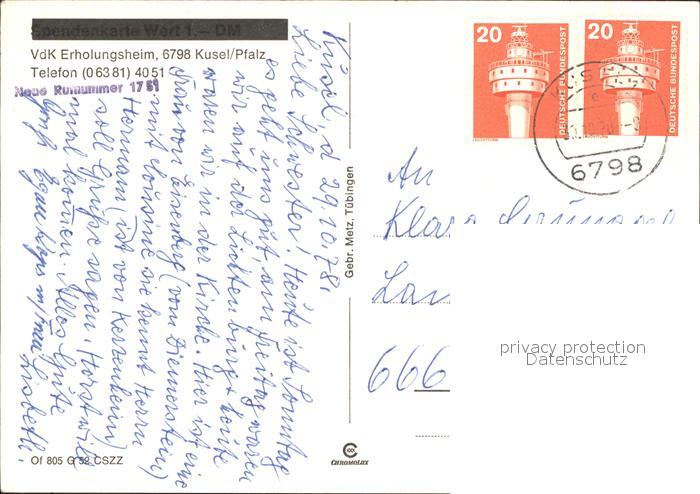 Spendenkarte Wert 1.– DM
VdK Erholungsheim, 6798 Kusel/Pfalz
Telefon (0 63 81) 40 51
Neue Rufnummer 17 51
Kusel, d 29.10.78.
Liebe Schwester! Heute ist Sonntag
es geht uns gut, am Freitag waren
wir auf der Lichtenburg + heute
waren wir in der Kirche. Hier ist eine
Frau von Eisenberg (vom Dinnerstein)
mit Cousine sie kennt Herrn
Hermann (ist von Kerzenheim)
soll Grüße sagen. Horst will
mal kommen. Alles Gute
Lisbeth.
Of 805 G 52 CSZZ
Gebr. Metz, Tübingen
CHROMOLUX
20
DEUTSCHE BUNDESPOST
LEUCHTTURM
20
DEUTSCHE BUNDESPOST
6798
An
Klara
666
privacy protection
Datenschutz